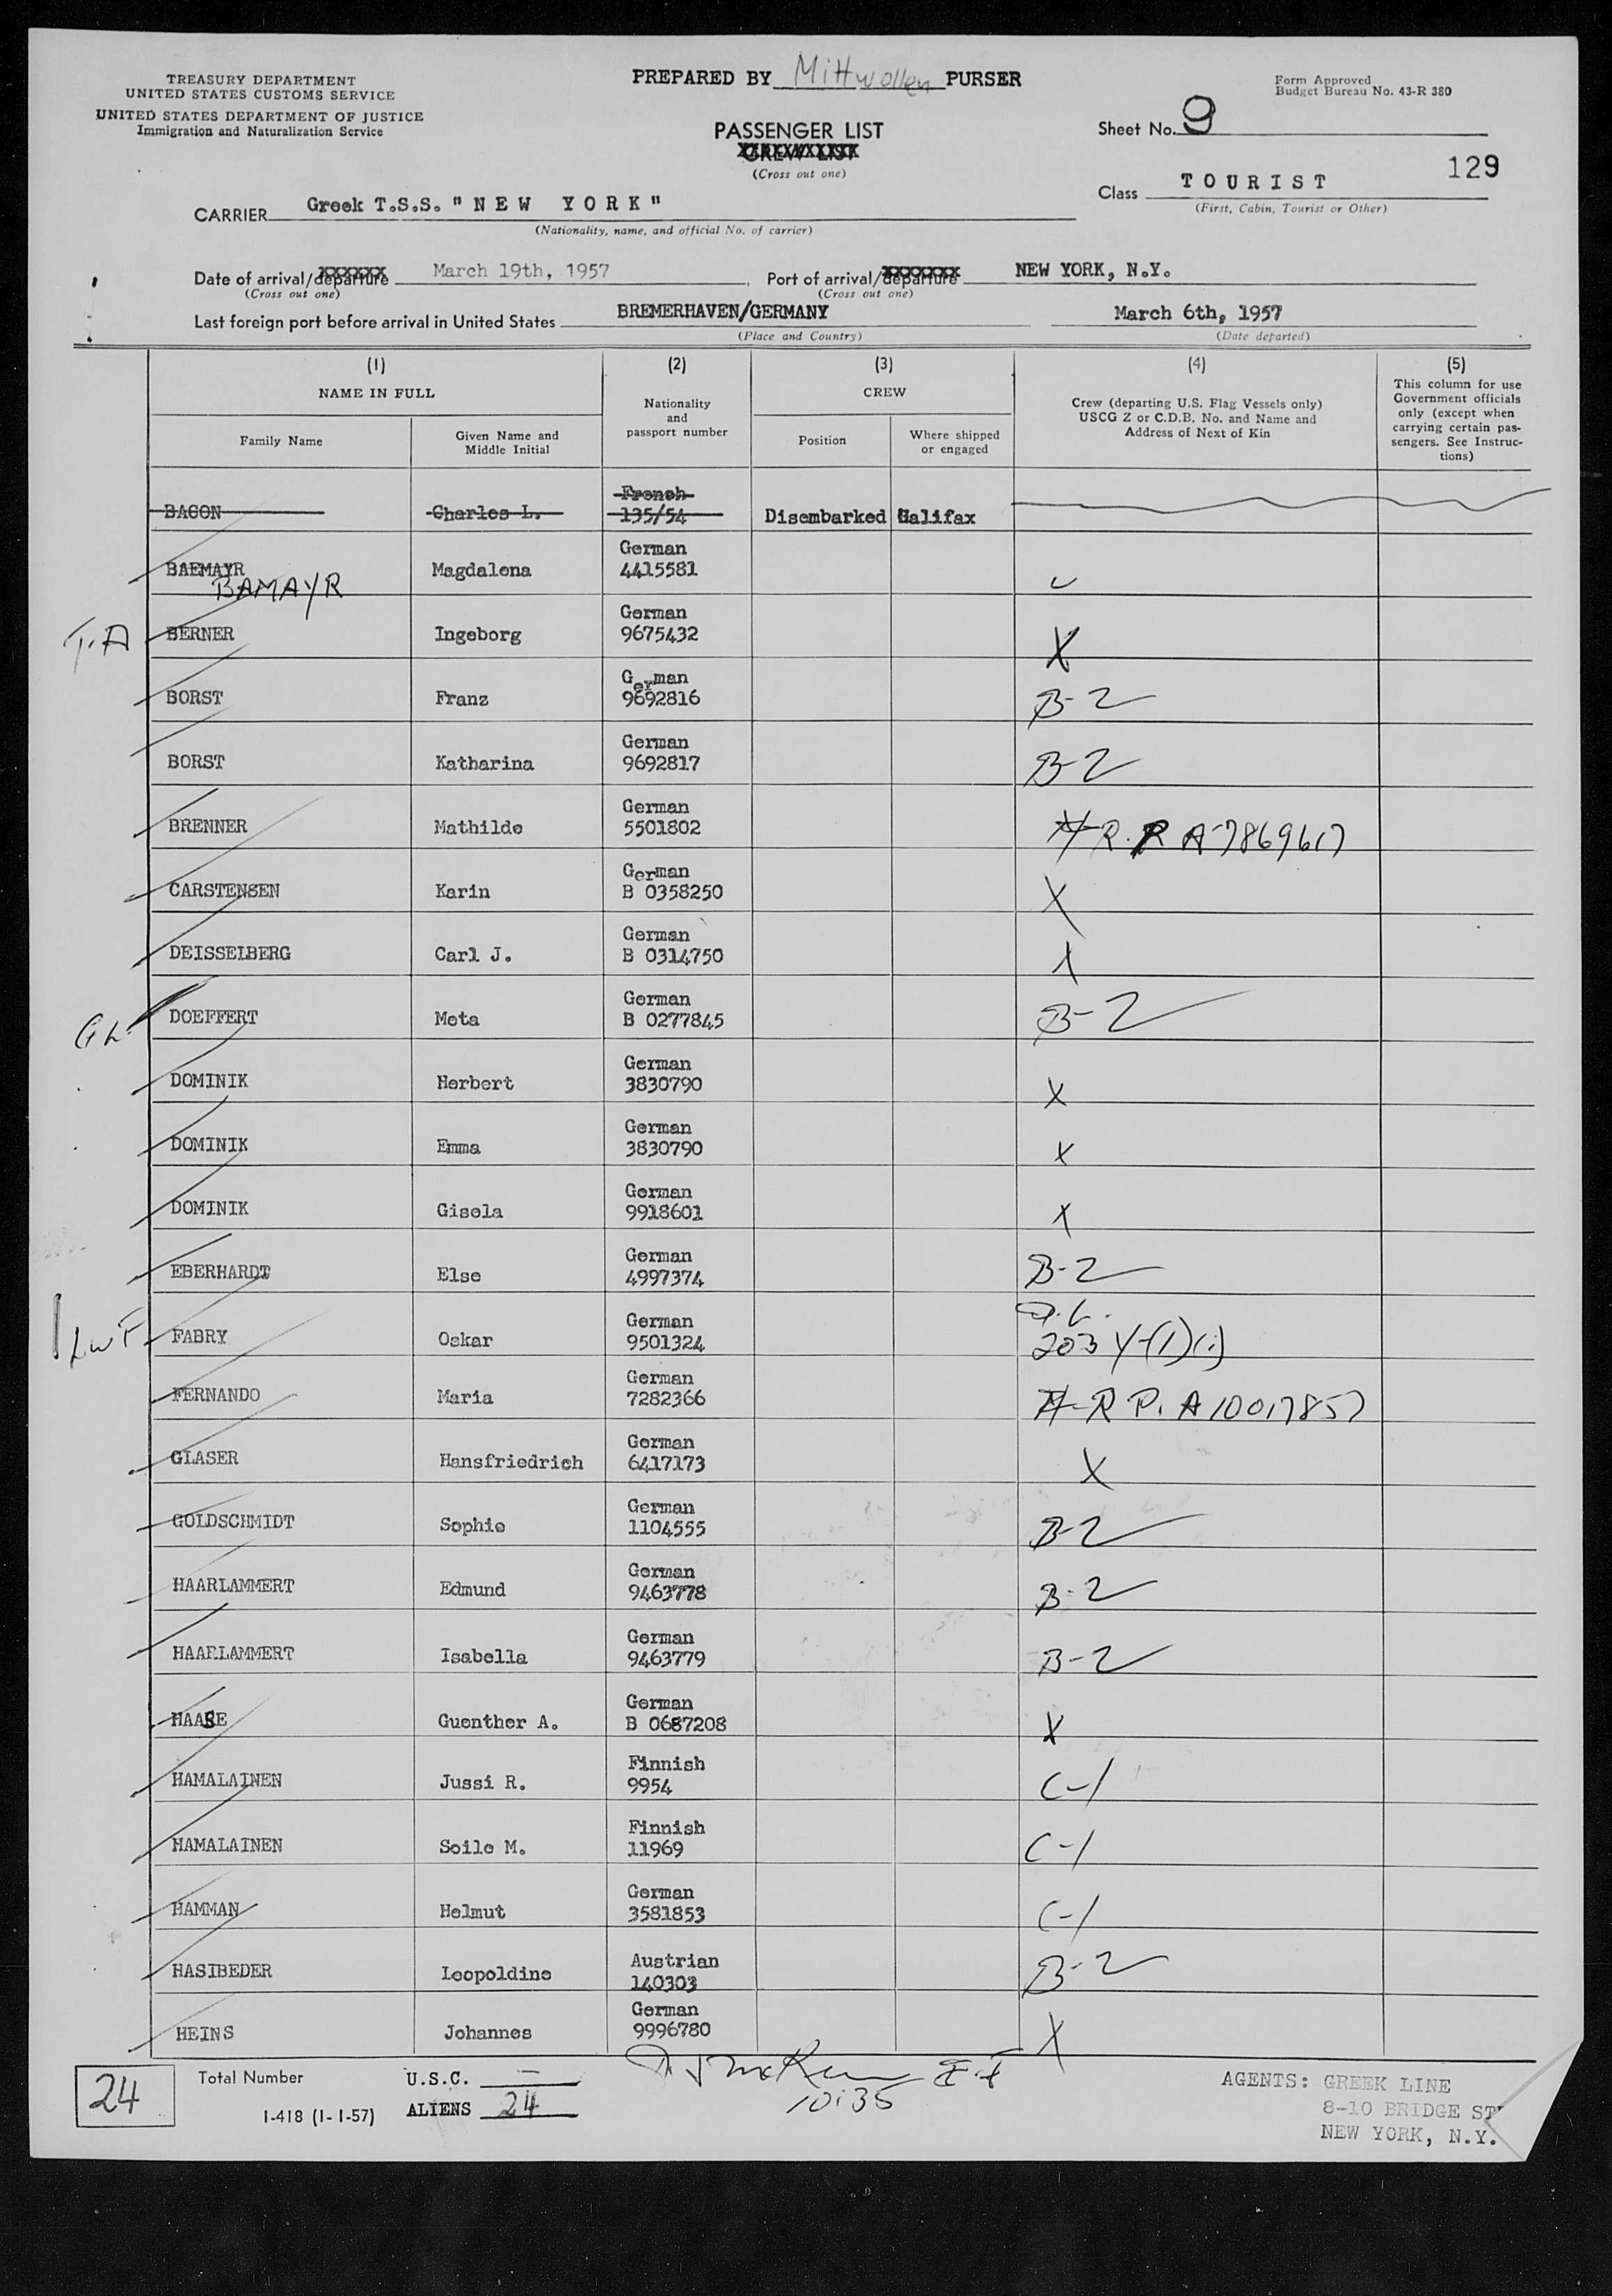 TREASURY DEPARTMENT
UNITED STATES CUSTOMS SERVICE
UNITED STATES DEPARTMENT OF JUSTICE
Immigration and Naturalization Service
PREPARED BY Mittwollen PURSER
Form Approved
Budget Bureau No. 43-R 380
PASSENGER LIST
CREW LIST
(Cross out one)
Sheet No. 9
129
Class TOURIST
(First, Cabin, Tourist or Other)
CARRIER Greek T.S.S. "NEW YORK"
(Nationality, name, and official No. of carrier)
Date of arrival/departure March 19th, 1957 Port of arrival/departure NEW YORK, N.Y.
(Cross out one) (Cross out one)
Last foreign port before arrival in United States BREMERHAVEN/GERMANY March 6th, 1957
(Place and Country) (Date departed)
(1) (2) (3) (4) (5)
NAME IN FULL
Family Name
Given Name and
Middle Initial
Nationality
and
passport number
CREW
Position
Where shipped
or engaged
Crew (departing U.S. Flag Vessels only)
USCG Z or C.D.B. No. and Name and
Address of Next of Kin
This column for use
Government officials
only (except when
carrying certain pas-
sengers. See Instruc-
tions)
French
BACON Charles L. 135/54 Disembarked Halifax
German
BAEMAYR Magdalena 4415581
BAMAYR
German
T.A BERNER Ingeborg 9675432 X
German
BORST Franz 9692816 B-2
German
BORST Katharina 9692817 B-2
German
BRENNER Mathilde 5501802 R.P A-7869617
German
CARSTENSEN Karin B 0358250 X
German
DEISSELBERG Carl J. B 0314750 X
German
DOEFFERT Meta B 0277845 B-2
German
DOMINIK Herbert 3830790 X
German
DOMINIK Emma 3830790 X
German
DOMINIK Gisela 9918601 X
German
EBERHARDT Else 4997374 B-2
German
LWF FABRY Oskar 9501324 203
German
FERNANDO Maria 7282366 R P. A10017857
German
GLASER Hansfriedrich 6417173 X
German
GOLDSCHMIDT Sophie 1104555 B-2
German
HAARLAMMERT Edmund 9463778 B-2
German
HAARLAMMERT Isabella 9463779 B-2
German
HAASE Guenther A. B 0687208 X
Finnish
HAMALAINEN Jussi R. 9954 C-1
Finnish
HAMALAINEN Soile M. 11969 C-1
German
HAMMAN Helmut 3581853 C-1
Austrian
HASIBEDER Leopoldine 140303 B-2
German
HEINS Johannes 9996780 X
24 Total Number U.S.C. —
I-418 (1-1-57) ALIENS 24
10:35
AGENTS: GREEK LINE
8-10 BRIDGE ST
NEW YORK, N.Y.